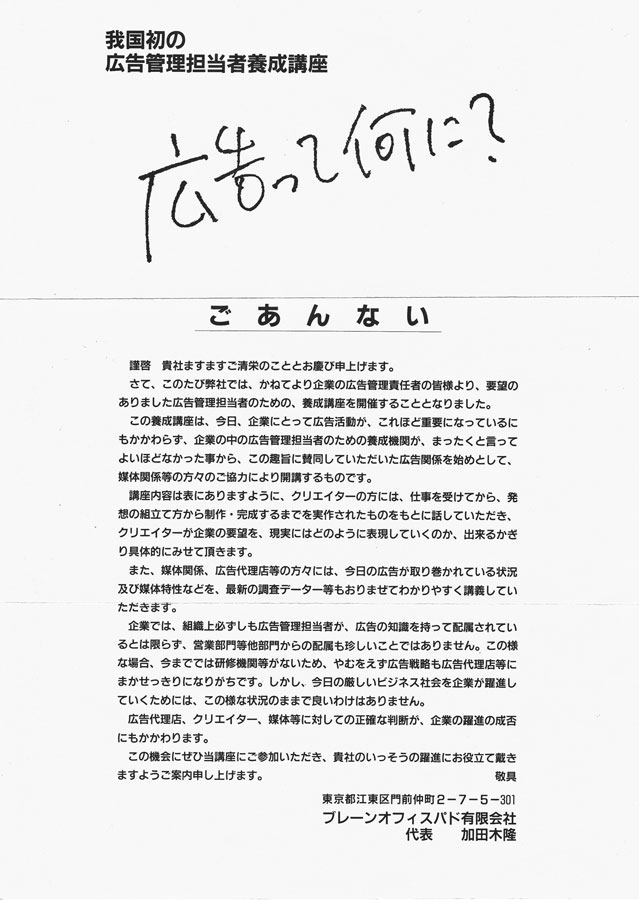 我国初の
広告管理担当者養成講座
広告って何に?
ごあんない
謹啓　貴社ますますご清栄のこととお慶び申上げます。
さて、このたび弊社では、かねてより企業の広告管理責任者の皆様より、要望の
ありました広告管理担当者のための、養成講座を開催することとなりました。
この養成講座は、今日、企業にとって広告活動が、これほど重要になっているに
もかかわらず、企業の中の広告管理担当者のための養成機関が、まったくと言って
よいほどなかった事から、この趣旨に賛同していただいた広告関係を始めとして、
媒体関係等の方々のご協力により開講するものです。
講座内容は表にありますように、クリエイターの方には、仕事を受けてから、発
想の組立て方から制作・完成するまでを実作されたものをもとに話していただき、
クリエイターが企業の要望を、現実にはどのように表現していくのか、出来るかぎ
り具体的にみせて頂きます。
また、媒体関係、広告代理店等の方々には、今日の広告が取り巻かれている状況
及び媒体特性などを、最新の調査データー等もおりまぜてわかりやすく講義してい
ただきます。
企業では、組織上必ずしも広告管理担当者が、広告の知識を持って配属されてい
るとは限らず、営業部門等他部門からの配属も珍しいことではありません。この様
な場合、今まででは研修機関等がないため、やむをえず広告戦略も広告代理店等に
まかせっきりになりがちです。しかし、今日の厳しいビジネス社会を企業が躍進し
ていくためには、この様な状況のままで良いわけはありません。
広告代理店、クリエイター、媒体等に対しての正確な判断が、企業の躍進の成否
にもかかわります。
この機会にぜひ当講座にご参加いただき、貴社のいっそうの躍進にお役立て戴き
ますようご案内申し上げます。　敬具
東京都江東区門前仲町2-7-5-301
ブレーンオフィスパド有限会社
代表　加田木隆